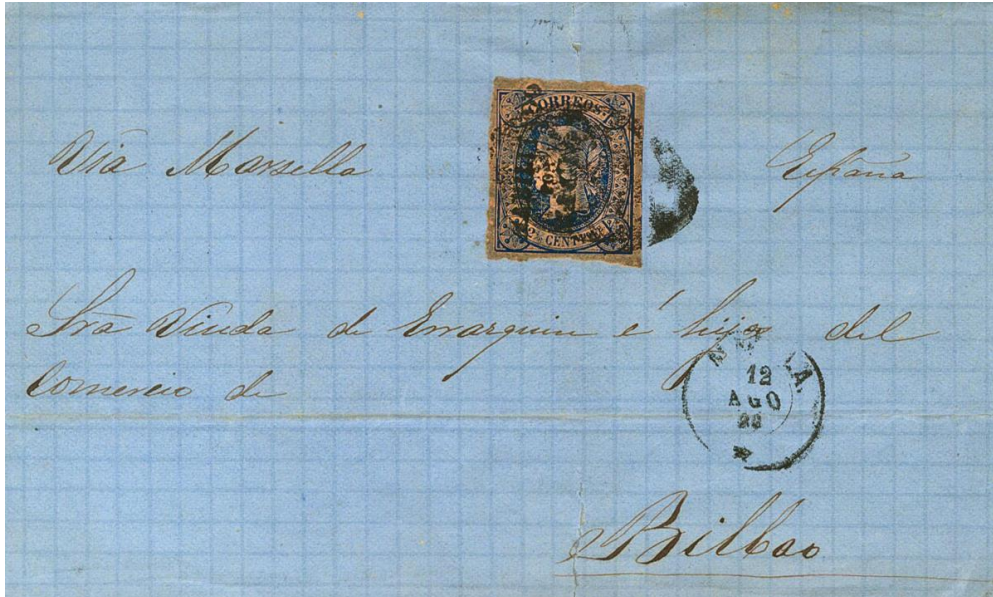 CORREOS
Via Marsella
España
CENT
Sra Viuda de Errazquin é hijo del
Comercio de
12
AGO
Bilbao